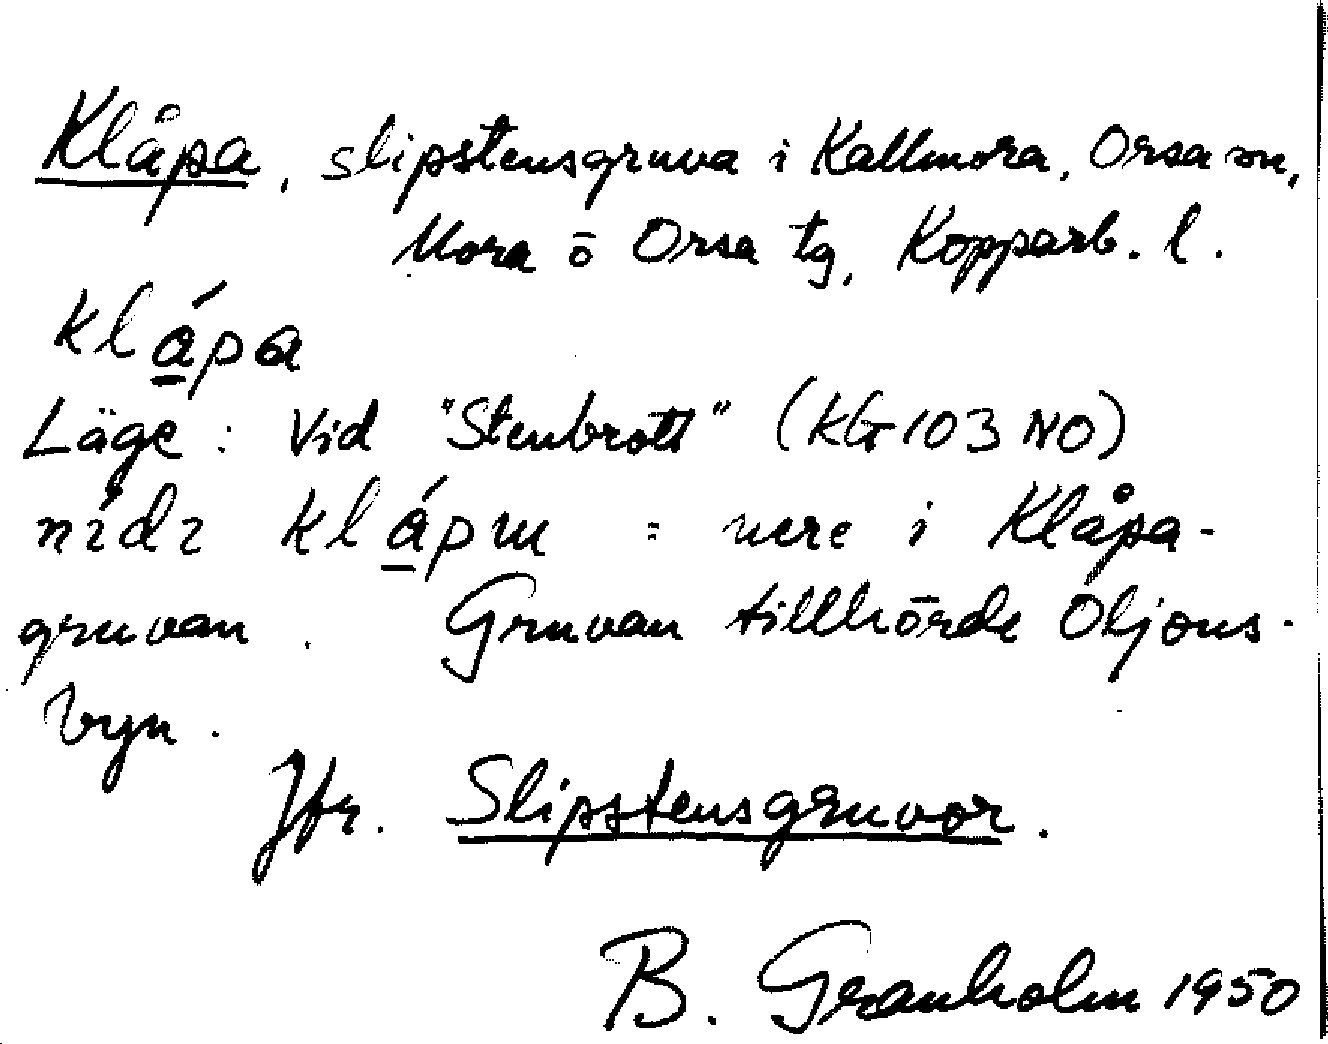 Klåpa, slipstensgruva i Kallmora, Orsa sn,
Mora ō Orsa tg, Kopparb. l.
klá̱pa
Läge: Vid "Stenbrott" (KG 103 NO)
nídı klá̱pm = nere i Klåpa-
gruvan. Gruvan tillhörde Oljons-
byn.
Jfr. Slipstensgruvor.
B. Granholm 1950